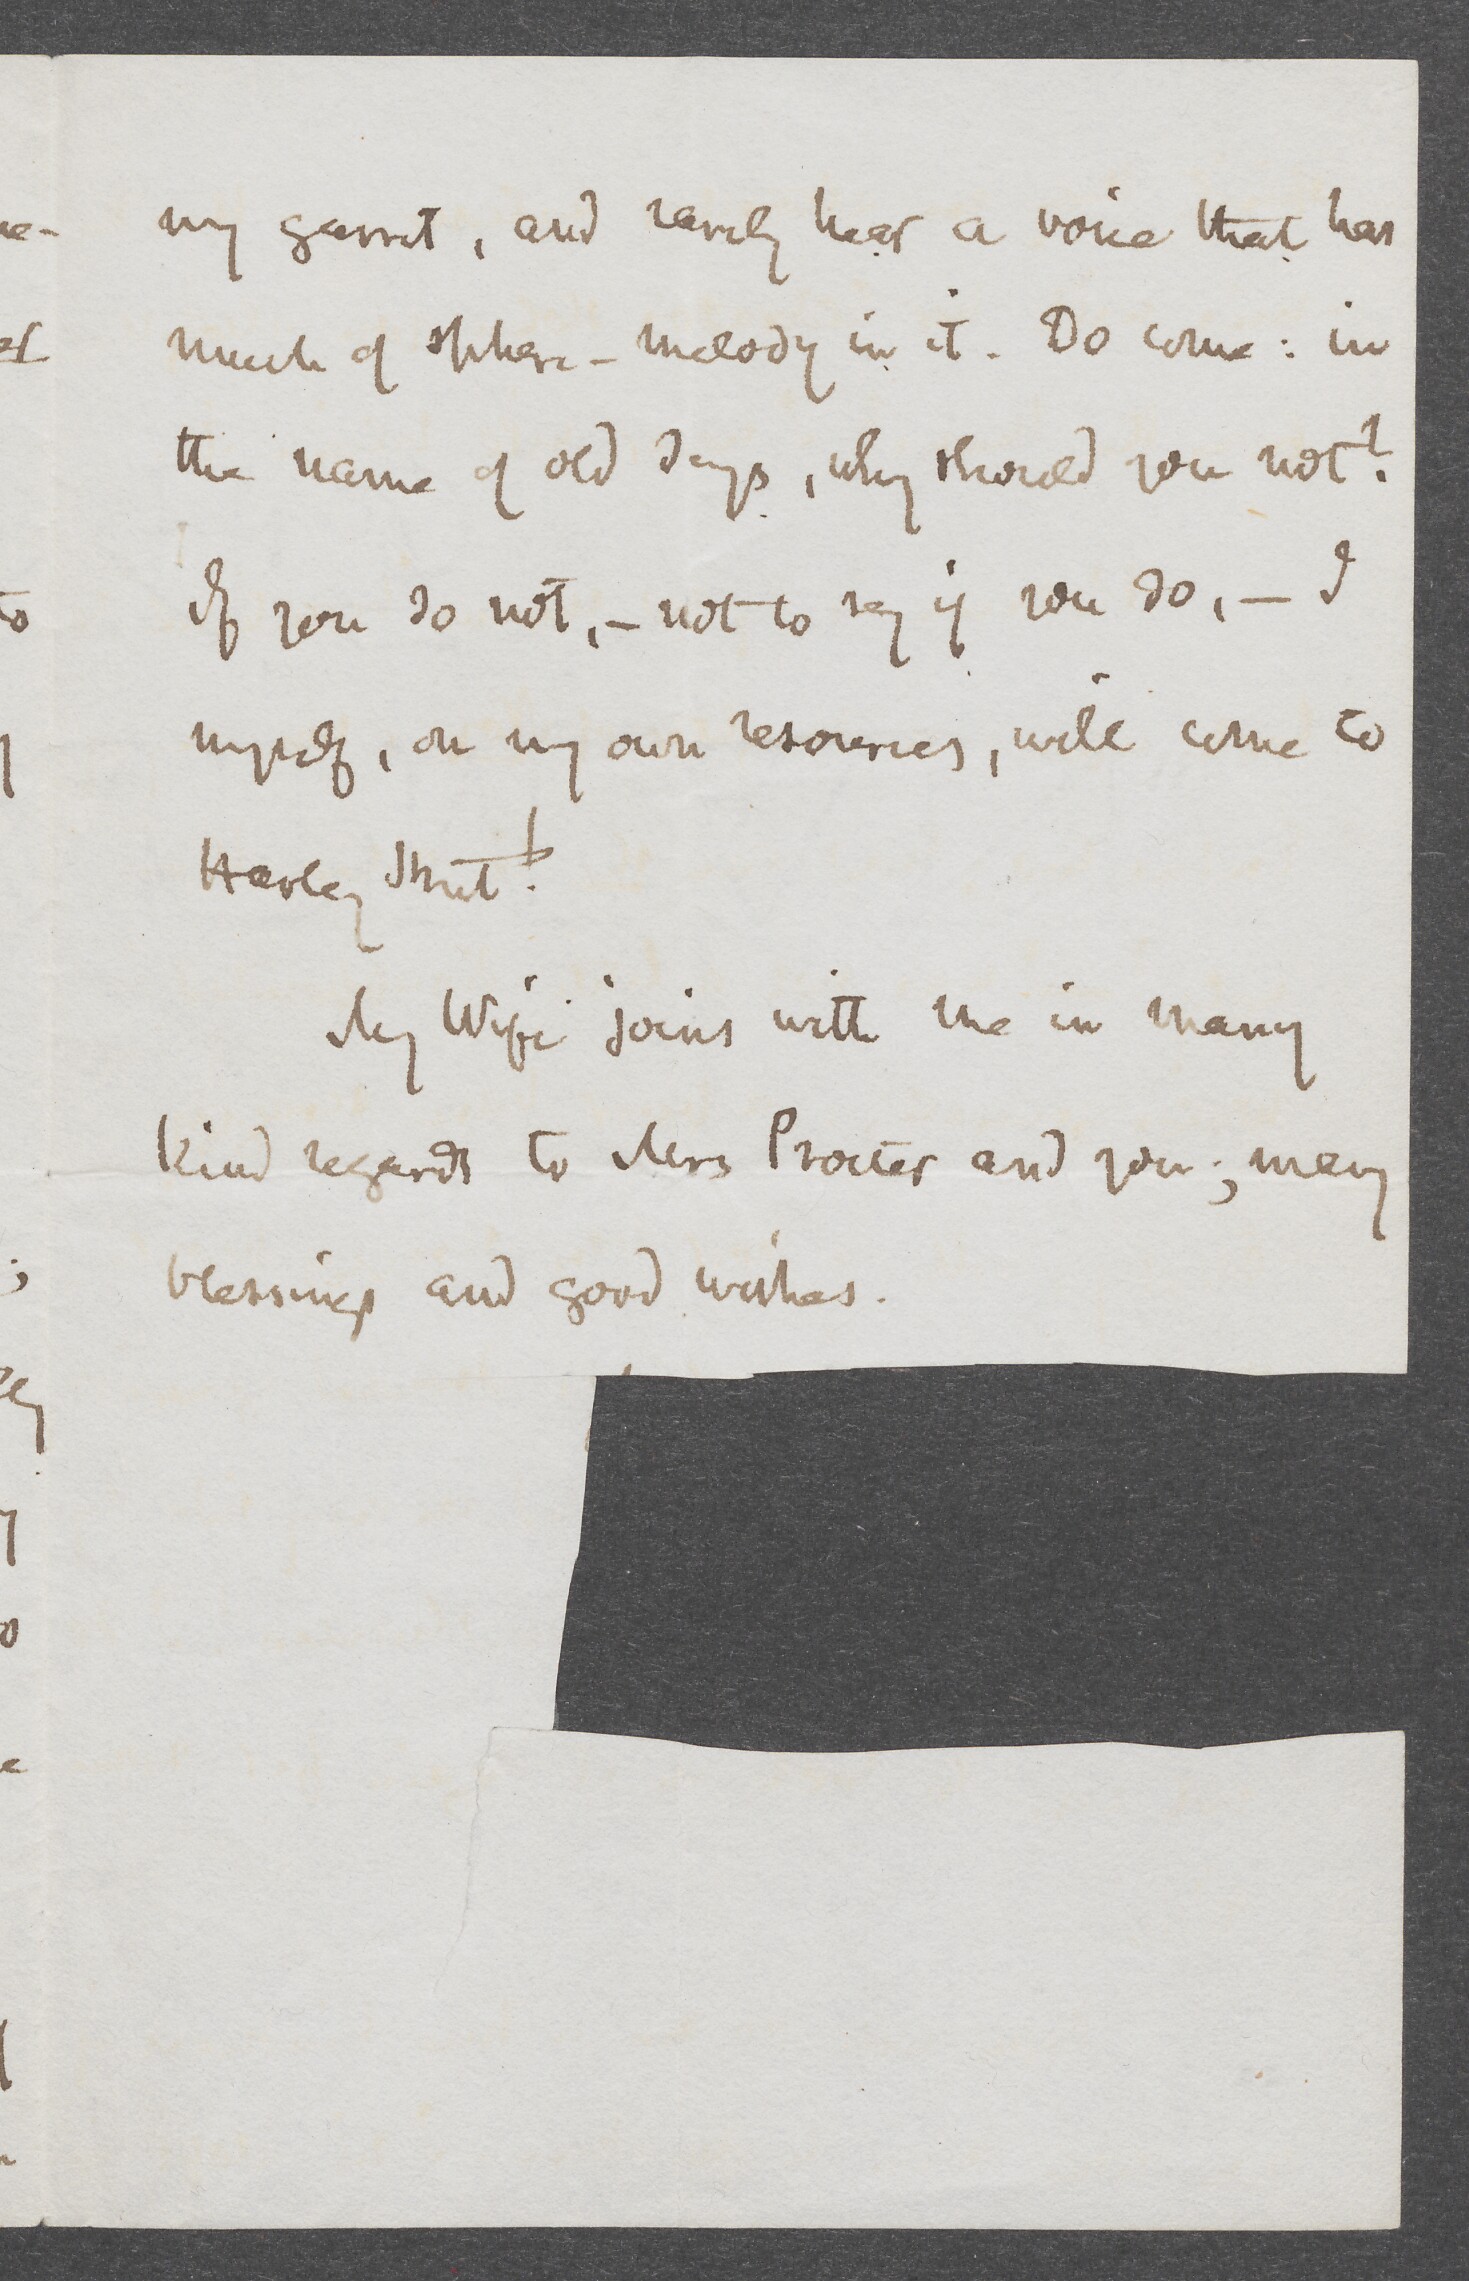 my garret, and rarely hear a voice that has
much of sphere-melody in it. Do come: in
the name of old days, why should you not?
If you do not, – not to say if you do, – I
myself, on my own resources, will come to
Harley Street!
My Wife joins with me in many
kind regards to Mrs Procter and you; many
blessings and good wishes.